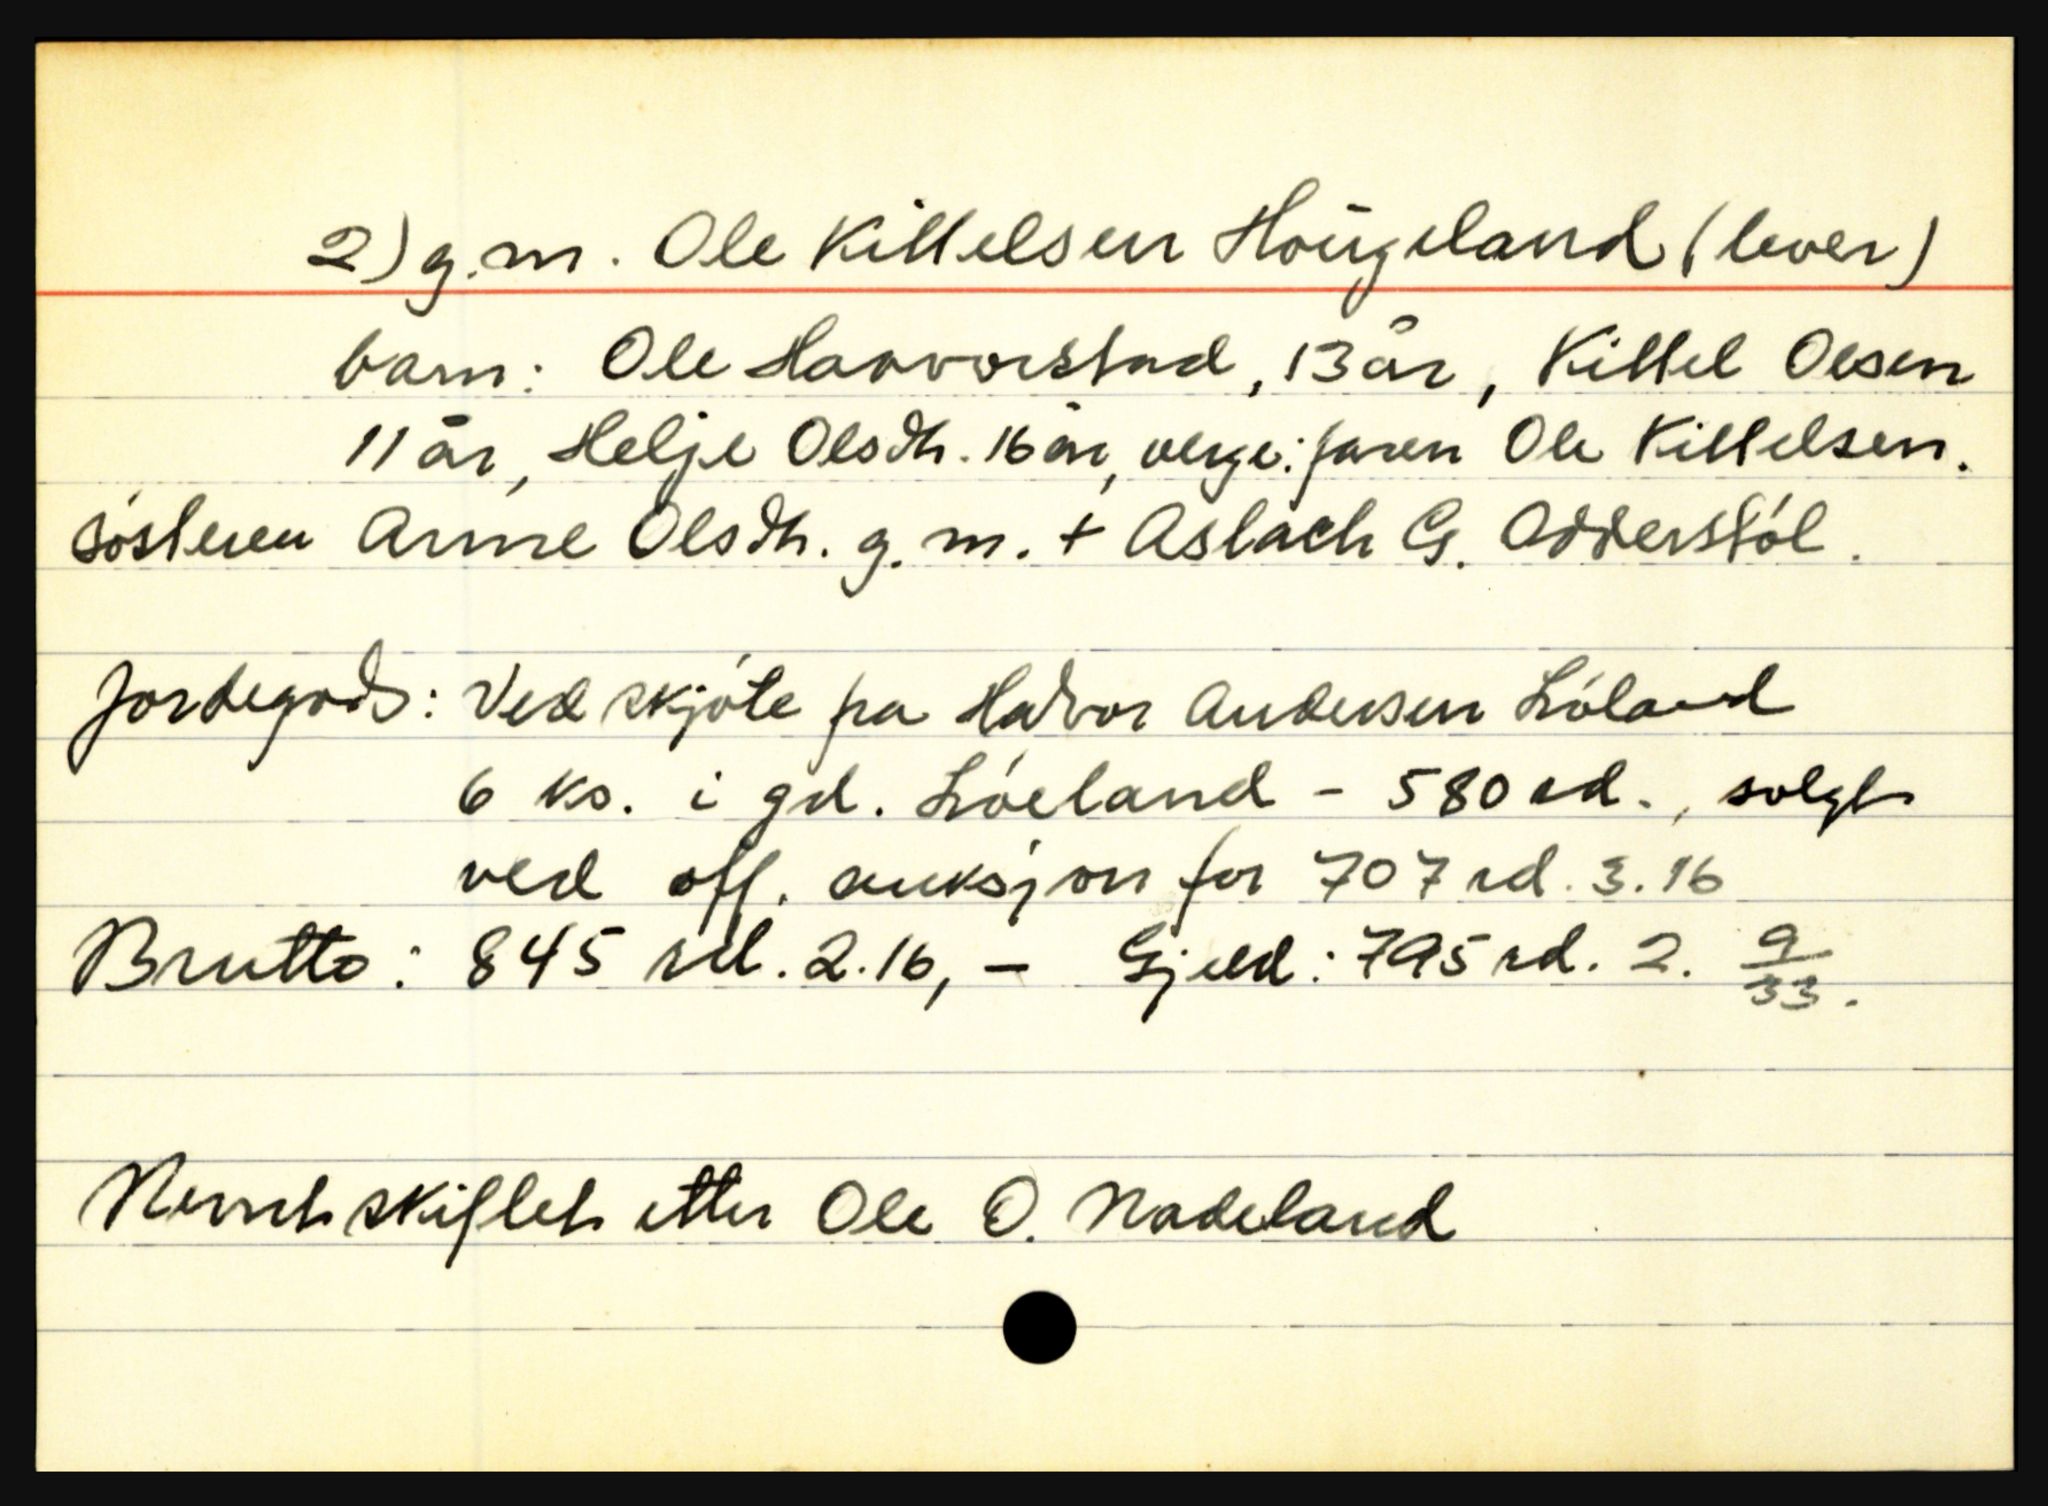 2) g.m. Ole Kittelsen Hoügeland (lever)
barn: Ole Havvorstad, 13 år, Kittel Olsen
11 år, Helje Olsdtr. 16 år, verge: faren Ole Kittelsen.
søsteren Anne Olsdtr. g.m. + Aslach G. Odderstøl.
Jordegods: Ved skjøte fra Halvor Andersen Liøland
6 ks. i gd. Liøeland - 580 rd., solgt
ved off. auksjon for 707 rd. 3.16
Brutto: 845 rd. 2.16, - Gjeld: 795 rd. 2. 9/33.
Nevnt skiftet etter Ole O. Nadeland